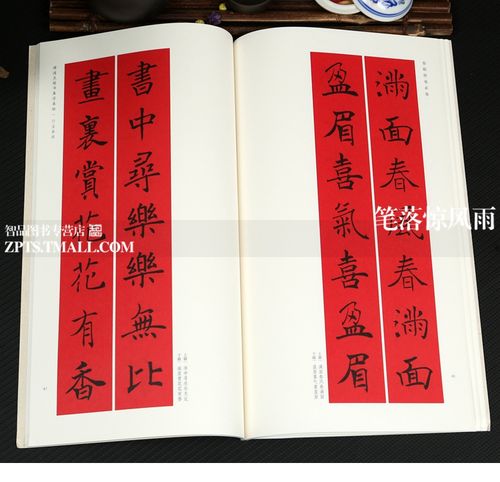 滿面春風春滿面
盈眉喜氣喜盈眉
書中尋樂樂無比
畫裏賞花花有香
笔落惊风雨
智品图书专营店
ZPTS.TMALL.COM